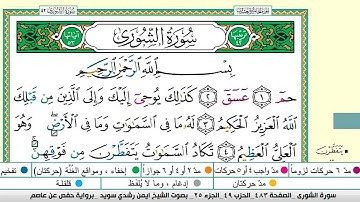 سُورَةُ الشُّورَىٰ
بِسْمِ اللَّهِ الرَّحْمَٰنِ الرَّحِيمِ
حمٓ ١ عٓسٓقٓ ٢ كَذَٰلِكَ يُوحِىٓ إِلَيْكَ وَإِلَى الَّذِينَ مِن قَبْلِكَ
اللَّهُ الْعَزِيزُ الْحَكِيمُ ٣ لَهُۥ مَا فِى السَّمَٰوَٰتِ وَمَا فِى الْأَرْضِ ۖ وَهُوَ
الْعَلِىُّ الْعَظِيمُ ٤ تَكَادُ السَّمَٰوَٰتُ يَتَفَطَّرْنَ مِن فَوْقِهِنَّ ۚ
يَتَفَطَّرْنَ
مدّ ٦ حركات لزوماً مدّ ٢ أو ٤ أو ٦ جوازاً إخفاء ، ومواقع الغُنَّة (حركتان) تفخيم
مدّ واجب ٤ أو ٥ حركات مدّ حركتان إدغام ، وما لا يُلفَظ قلقلة
سورة الشورى _الصفحة ٤٨٣_ الحزب ٤٩_ الجزء ٢٥_ بصوت الشيخ ايمن رشدي سويد _ برواية حفص عن عاصم